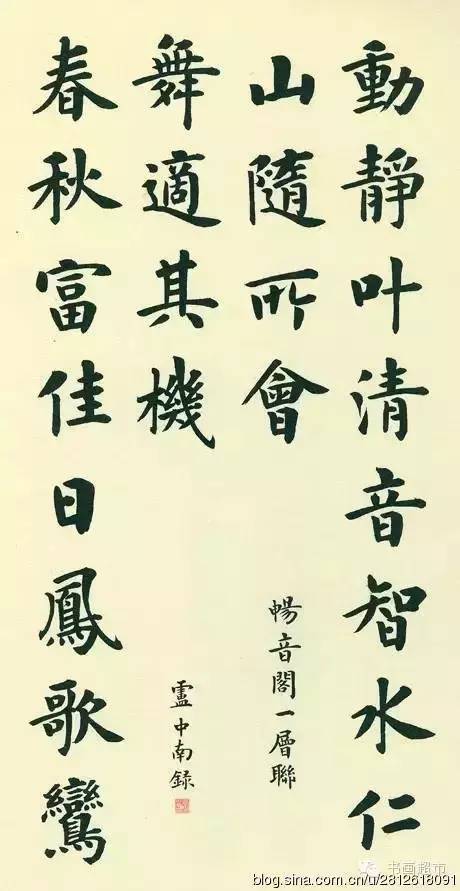 動靜叶清音智水仁
山隨所會
暢音閣一層聯
春秋富佳日鳳歌鸞
舞適其機
盧中南録
书画超市
blog.sina.com.cn/u/2812618091